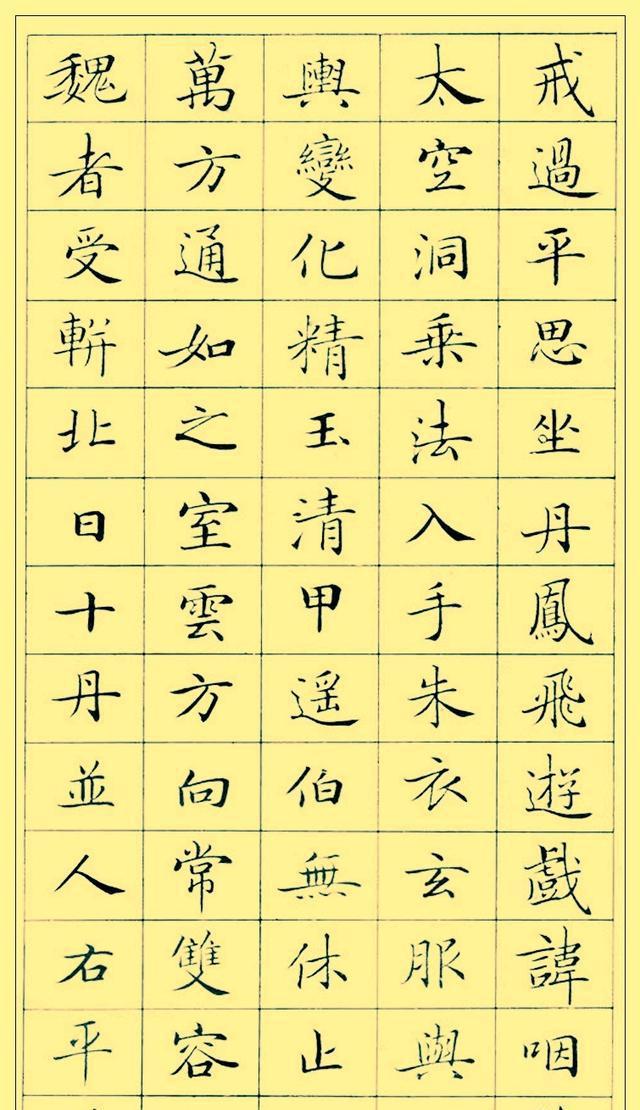 戒過平思坐丹鳳飛遊戲諱咽
太空洞乘法入手朱衣玄服與
輿變化精玉清甲遥伯無休止
萬方通如之室雲方向常雙容
魏者受輧北日十丹並人右平